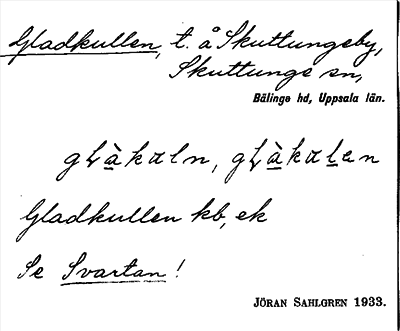 Gladkullen, t. å Skuttungeby,
Skuttunge sn,
Bälinge hd, Uppsala län.
gLàkαln, gLàkαlen
Gladkullen kb, ek
Se Svartan!
JÖRAN SAHLGREN 1933.